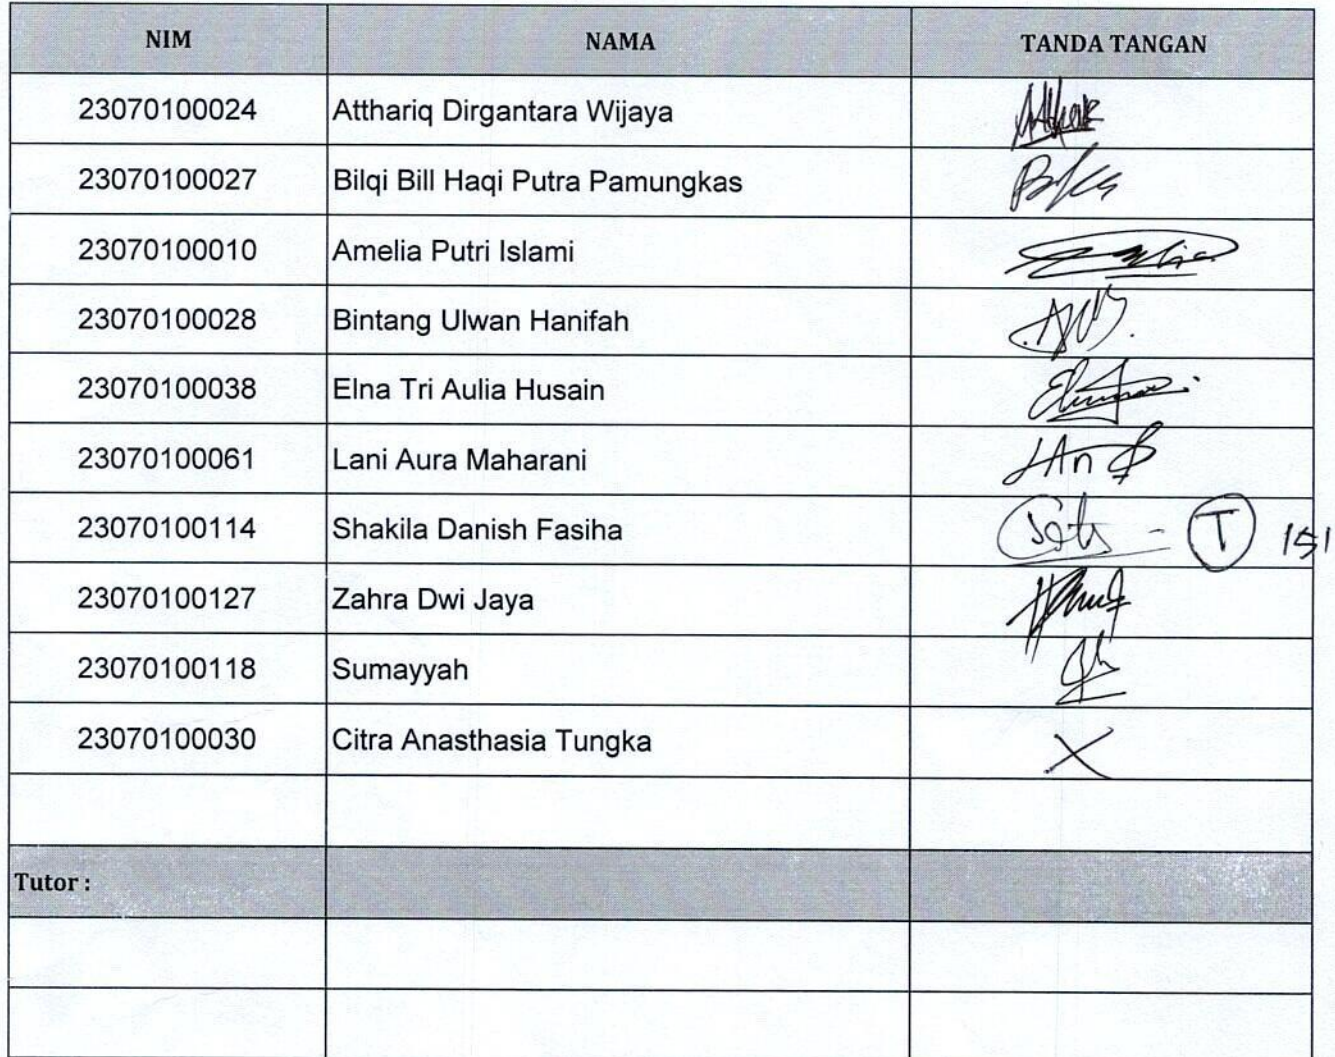 NIM NAMA TANDA TANGAN
23070100024 Atthariq Dirgantara Wijaya
23070100027 Bilqi Bill Haqi Putra Pamungkas
23070100010 Amelia Putri Islami
23070100028 Bintang Ulwan Hanifah
23070100038 Elna Tri Aulia Husain
23070100061 Lani Aura Maharani
23070100114 Shakila Danish Fasiha T
23070100127 Zahra Dwi Jaya
23070100118 Sumayyah
23070100030 Citra Anasthasia Tungka X
Tutor :